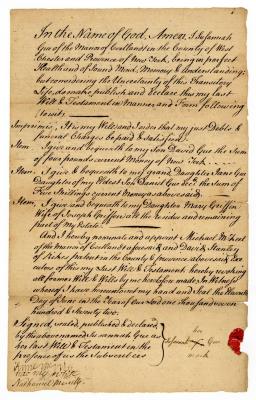 In the Name of God, Amen, I Susannah
Gue of the Manor of Cortlandt in the County of West
Chester and Province of New York, being in perfect
Health and of Sound Mind, Memory & Understanding;
but considering the Uncertainty of this Transitory
Life, do make publish and declare this my last
Will & Testament in Manner and Form following
(to wit)
Imprimis, It is my Will and I order that my just Debts &
funeral Charges be paid & satisfied.
Item. I give and bequeath to my Son David Gue the Sum
of four pounds current Money of New York.
Item. I give & bequeath to my grand Daughter Jane Gue
Daughter of my eldest Son Daniel Gue the Sum of
Five Shillings current Money aforesaid.
Item. I give and bequeath to my Daughter Mary Griffin
Wife of Joseph Griffin all the residue and remaining
part of my Estate.
And I hereby nominate and appoint Michael
of the Manor of Cortlandt aforesaid and David
of in the County & province abovesaid Exe
cutors of this my last Will & Testament hereby revoking
all former Wills & Wills by me heretofore made. In Witness
whereof I have hereunto set my hand and Seal the
Day of June in the Year of our Lord one thousand seven
hundred & Seventy two.
Signed, sealed, published & declared
by the abovenamed Susannah Gue as
her last Will & Testament in the
presence of us the Subscribers
her
Susannah X Gue
mark
Nathaniel Merritt